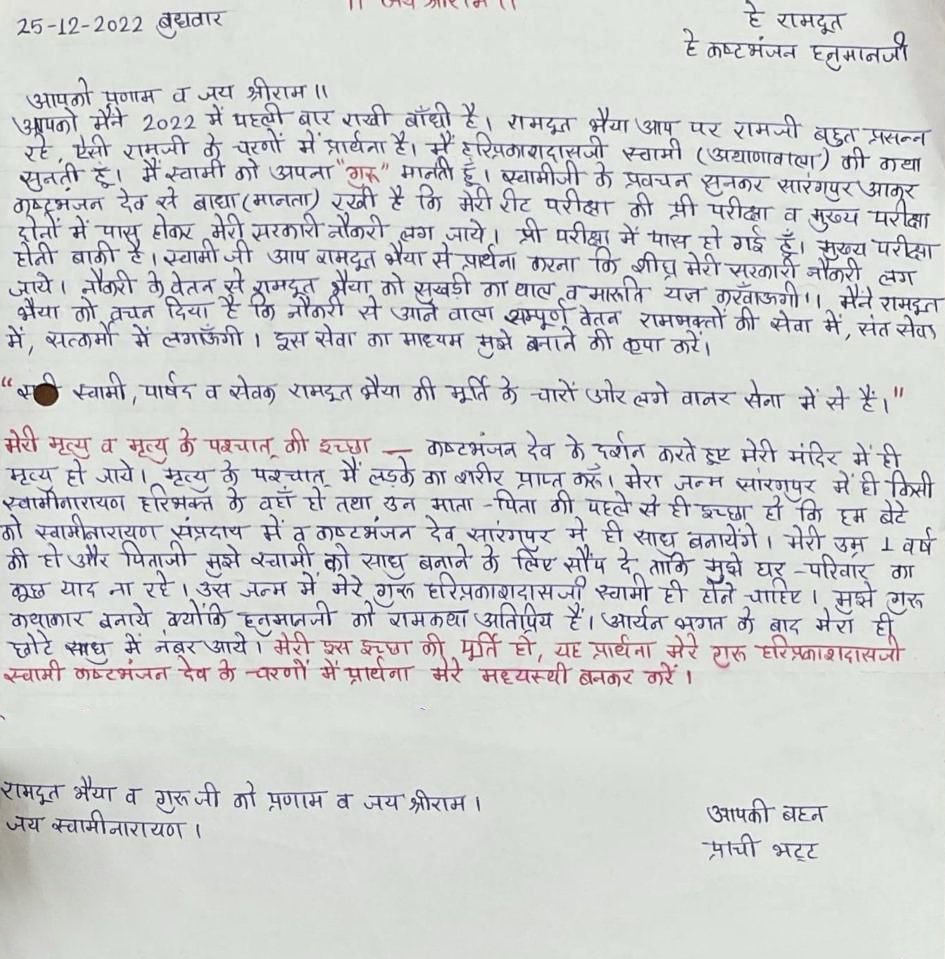 ।। जय श्रीराम ।।
25-12-2022 बुधवार
हे रामदूत
हे कष्टभंजन हनुमानजी
आपको प्रणाम व जय श्रीराम ।।
आपको मैंने 2022 में पहली बार राखी बाँधी है। रामदूत भैया आप पर रामजी बहुत प्रसन्न
रहे, ऐसी रामजी के चरणों में प्रार्थना है। मैं हरिप्रकाशदासजी स्वामी (अथाणावाला) की कथा
सुनती हूँ। मैं स्वामी को अपना "गुरू" मानती हूँ। स्वामीजी के प्रवचन सुनकर सारंगपुर आकर
कष्टभंजन देव से बाधा (मानता) रखी है कि मेरी रीट परीक्षा की प्री परीक्षा व मुख्य परीक्षा
दोनों में पास होकर मेरी सरकारी नौकरी लग जाये। प्री परीक्षा में पास हो गई हूँ। मुख्य परीक्षा
होनी बाकी है। स्वामीजी आप रामदूत भैया से प्रार्थना करना कि शीघ्र मेरी सरकारी नौकरी लग
जाये। नौकरी के वेतन से रामदूत भैया को सुखडी का थाल व मारूति यज्ञ करवाऊगी।। मैंने रामदूत
भैया को वचन दिया है कि नौकरी से आने वाला सम्पूर्ण वेतन रामभक्तों की सेवा में, संत सेवा
में, सत्कर्मो में लगाऊँगी। इस सेवा का माध्यम मुझे बनाने की कृपा करें।
" स्वामी, पार्षद व सेवक रामदूत भैया की मूर्ति के चारों ओर लगे वानर सेना में से हैं।"
मेरी मृत्यु व मृत्यु के पश्चात् की इच्छा — कष्टभंजन देव के दर्शन करते हुए मेरी मंदिर में ही
मृत्यु हो जाये। मृत्यु के पश्चात् मैं लड़के का शरीर प्राप्त करूँ। मेरा जन्म सारंगपुर में ही किसी
स्वामीनारायण हरिभक्त के वहाँ हो तथा उन माता-पिता की पहले से ही इच्छा हो कि हम बेटे
को स्वामीनारायण संप्रदाय में व कष्टभंजन देव सारंगपुर में ही साधु बनायेंगे। मेरी उम्र 1 वर्ष
की हो और पिताजी मुझे स्वामी को साधु बनाने के लिए सौंप दे ताकि मुझे घर-परिवार का
कुछ याद ना रहे। उस जन्म में मेरे गुरू हरिप्रकाशदासजी स्वामी ही होने चाहिए। मुझे गुरू
कथाकार बनाये क्योंकि हनुमानजी को रामकथा अतिप्रिय हैं। आर्यन भगत के बाद मेरा ही
छोटे साधु में नंबर आये। मेरी इस इच्छा की पूर्ति हो, यह प्रार्थना मेरे गुरू हरिप्रकाशदासजी
स्वामी कष्टभंजन देव के चरणों में प्रार्थना मेरे मध्यस्थी बनकर करें।
रामदूत भैया व गुरूजी को प्रणाम व जय श्रीराम।
जय स्वामीनारायण।
आपकी बहन
प्राची भट्ट